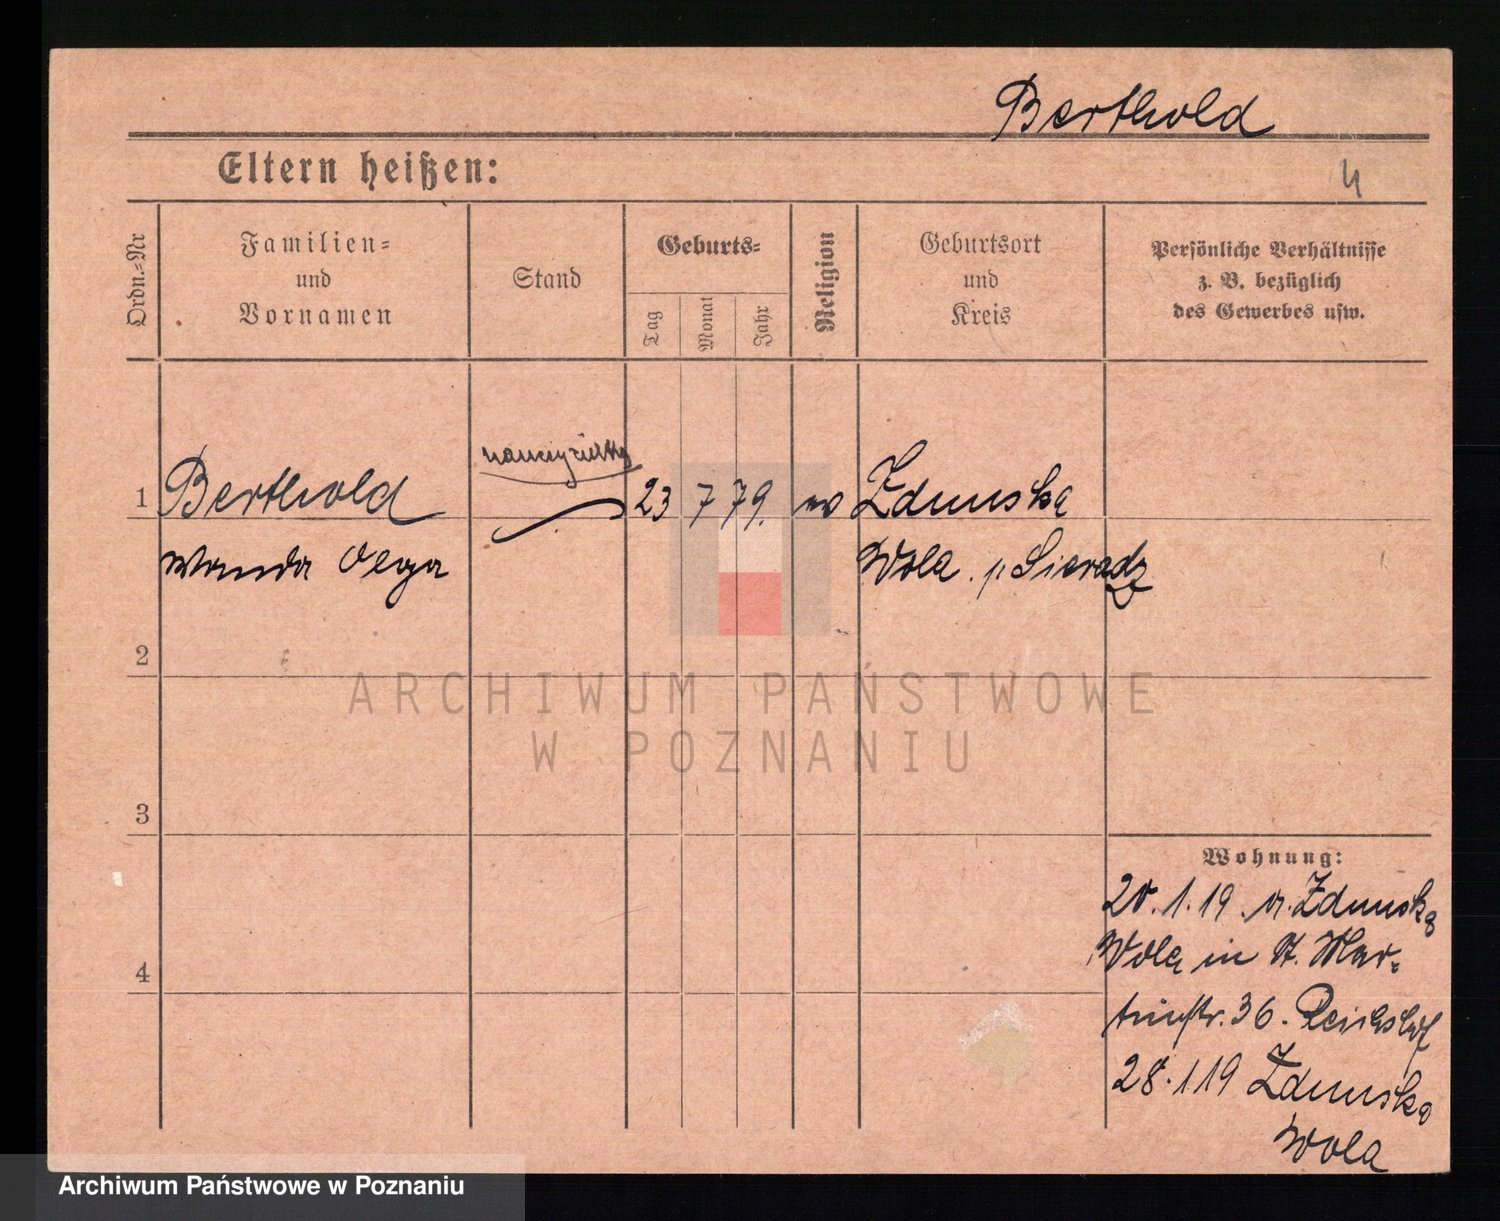 Berthold
Eltern heißen:
4
Ordn.-Nr
Familien-
und
Vornamen
Stand
Geburts-
Tag
Monat
Jahr
Religion
Geburtsort
und
Kreis
Persönliche Verhältnisse
z. B. bezüglich
des Gewerbes usw.
1 Berthold 23 7 79. Zdunska
Wanda Olga Wola. p Sieradz
2
3
4
Wohnung:
20.1.19. v. Zdunska
Wola in St. Mar-
tinstr. 36. Reichshof
28.1 19 Zdunska
Wola
ARCHIWUM PAŃSTWOWE
W POZNANIU
Archiwum Państwowe w Poznaniu